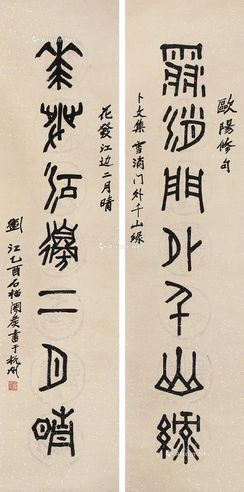 歐陽修句
雪消門外千山綠
卜文集 雪消门外千山绿
花發江邊二月晴
花發江边二月晴
劉江乙酉石榴開度書于杭州